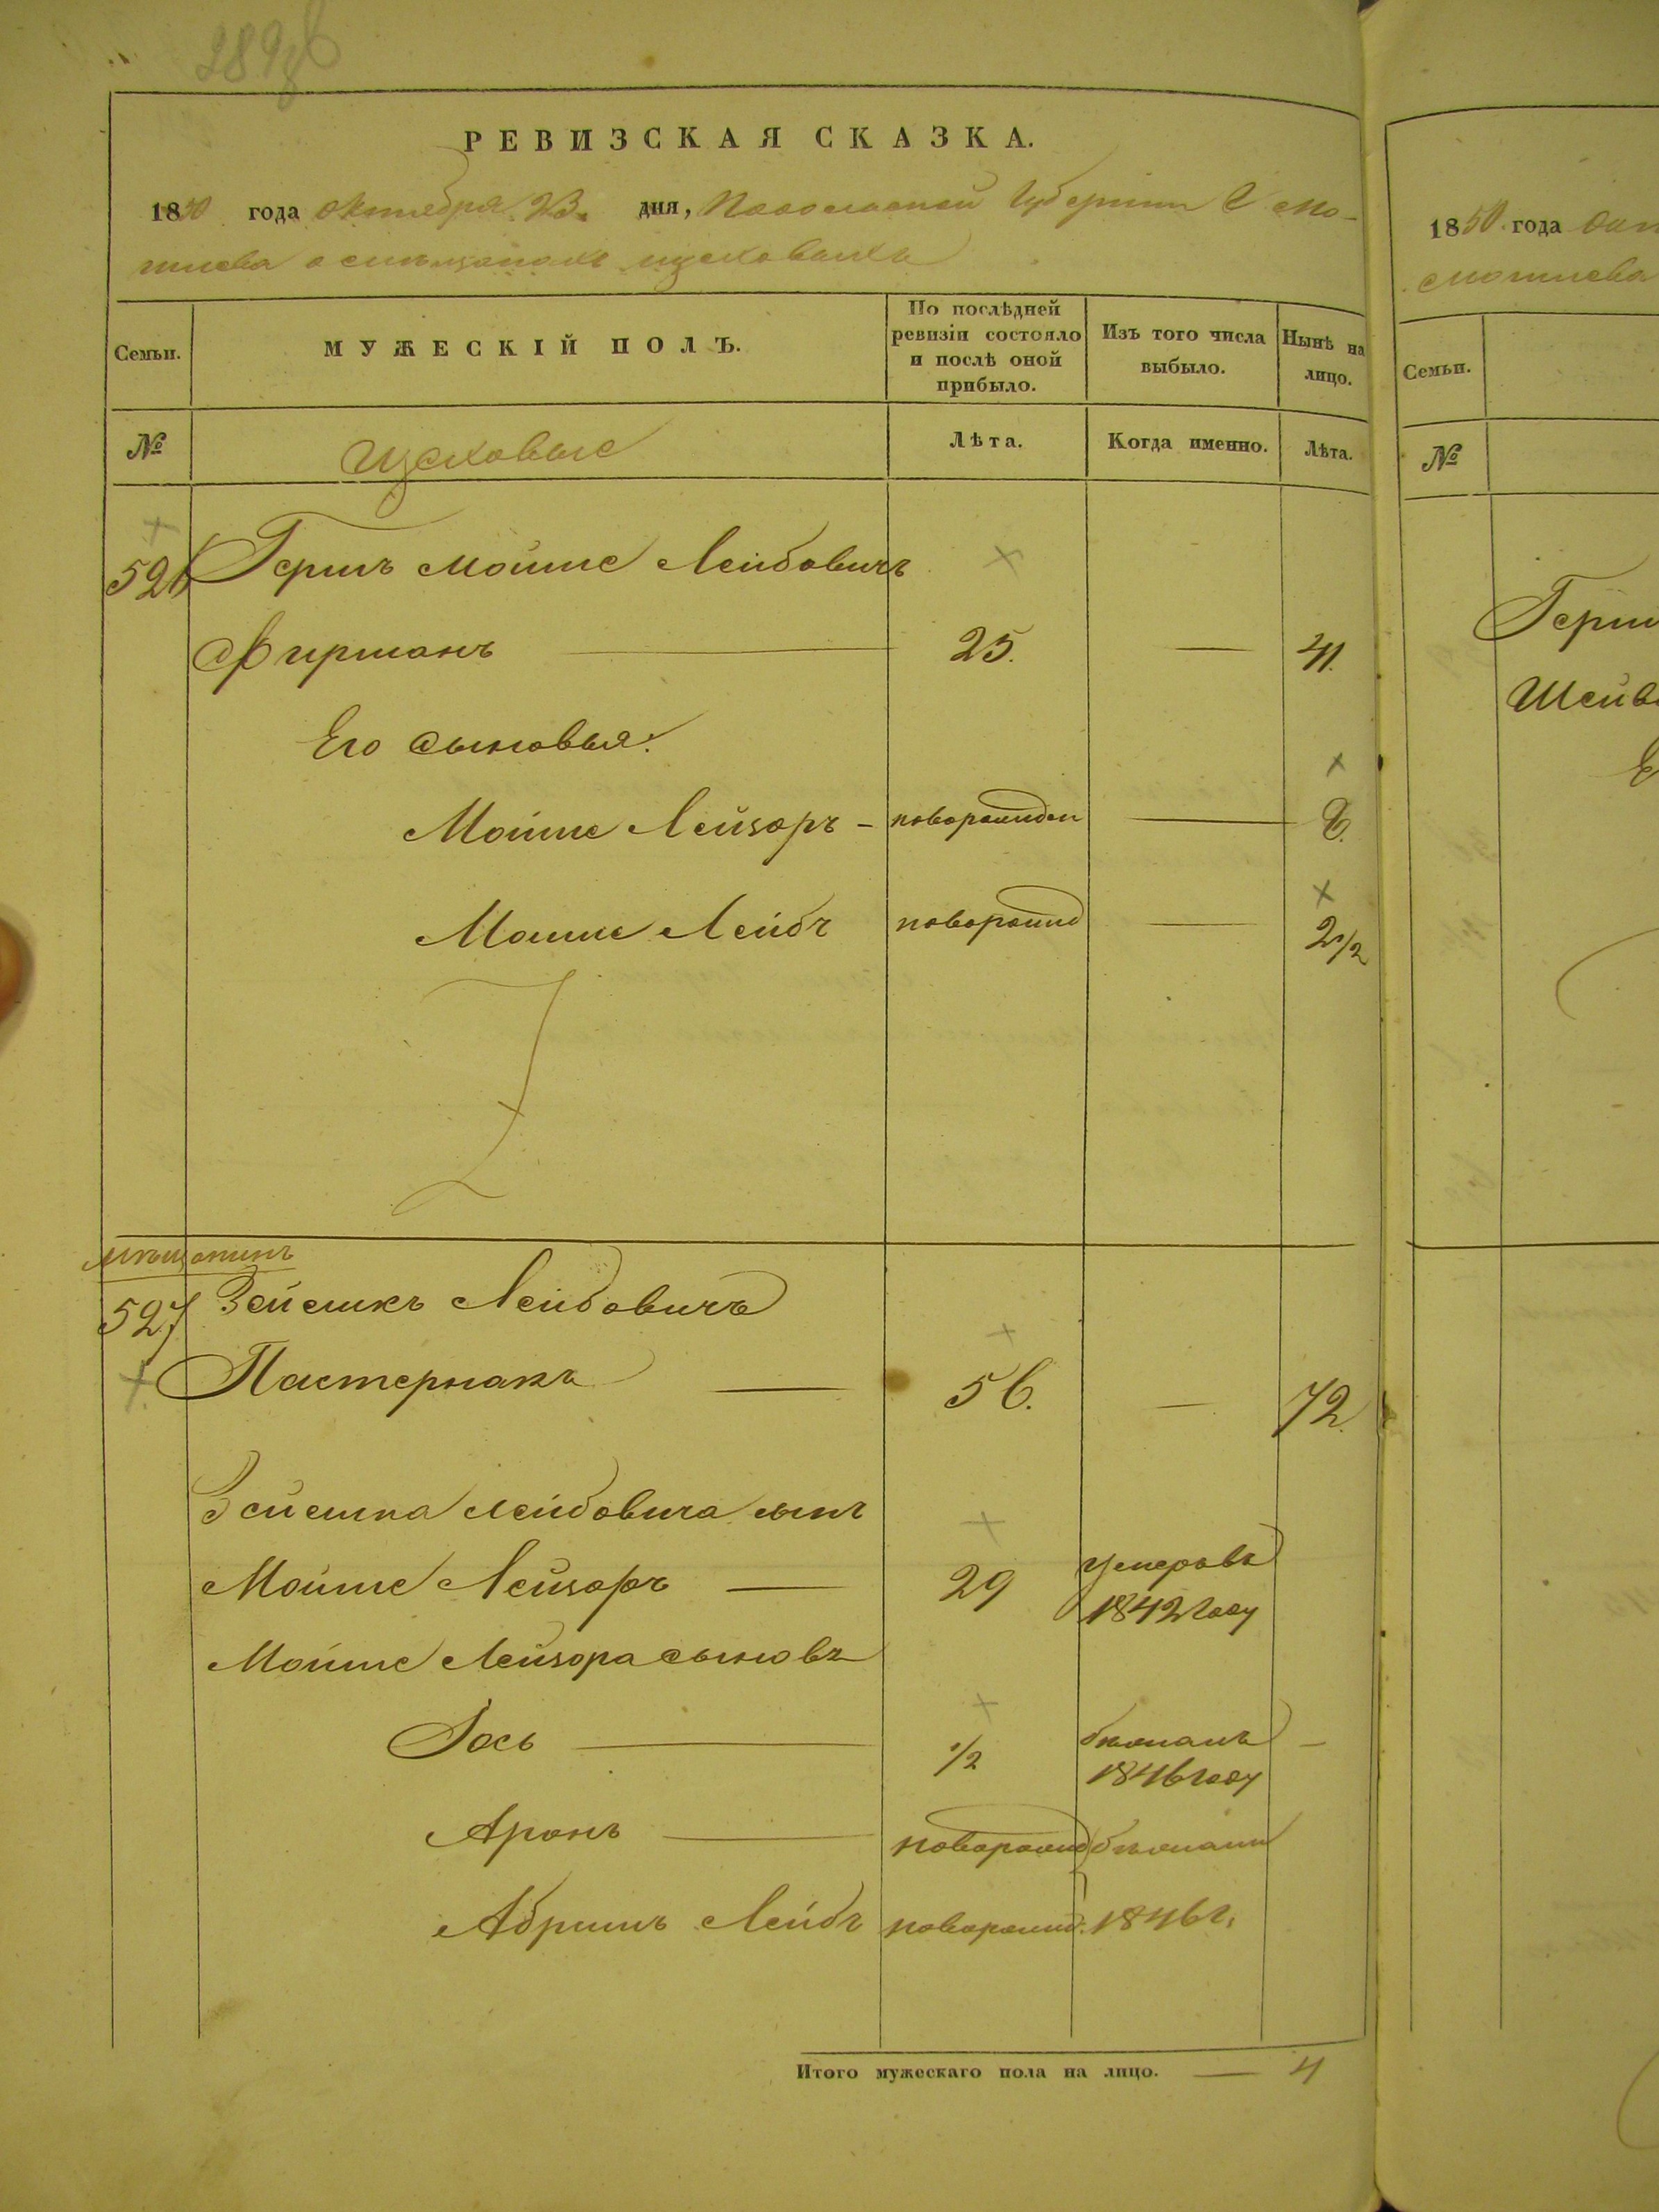 РЕВИЗСКАЯ СКАЗКА.
1850 года октября 23. дня, Подольской Губернии Г Мо-
гилева о мѣщанахъ цеховыхъ
Семьи.
МУЖЕСКІЙ ПОЛЪ.
По послѣдней ревизіи состояло и послѣ оной прибыло.
Изъ того числа выбыло.
Нынѣ на лицо.
№
Цеховые
Лѣта.
Когда именно.
Лѣта.
526 Гершъ Мойше Лейбовичъ
Фирманъ 25. 41.
Его сыновья:
Мойше Лейзоръ - новорожден 8.
Мошке Лейбъ новорожд 2 1/2
мѣщанинъ
527 Лейбовичъ
Пастернакъ 56. 72.
Лейбовича сынъ
Мойше Лейзоръ 29 умеръ въ
1842 году
Мойше Лейзора сыновъ
Іось 1/2 бѣжалъ
1846 году
Аронъ новорожд бѣжали
Абрумъ Лейбъ новорожд. 1846 г.
Итого мужескаго пола на лицо. 4
1850 года окт
Могилева
Семьи.
№
Герш
Шейв